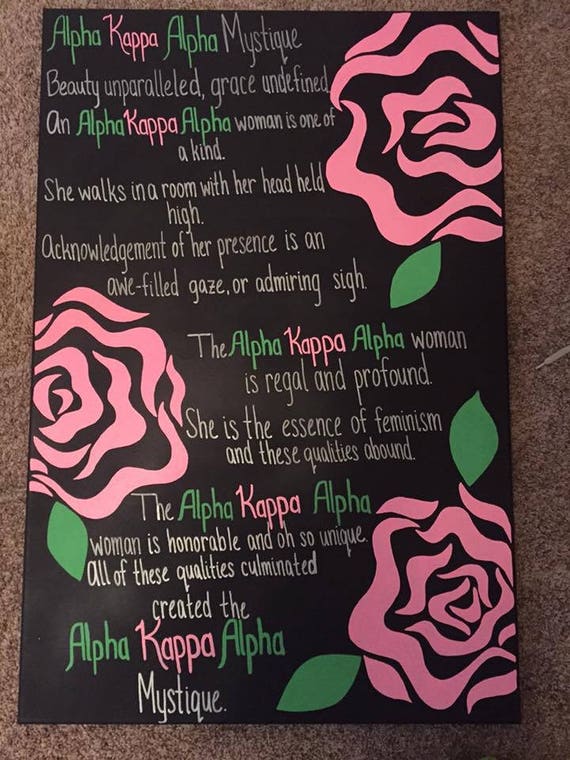 Alpha Kappa Alpha Mystique
Beauty unparalleled, grace undefined
An Alpha Kappa Alpha woman is one of
a kind.
She walks in a room with her head held
high.
Acknowledgement of her presence is an
awe-filled gaze, or admiring sigh.
The Alpha Kappa Alpha woman
is regal and profound.
She is the essence of feminism
and these qualities abound.
The Alpha Kappa Alpha
woman is honorable and oh so unique.
All of these qualities culminated
created the
Alpha Kappa Alpha
Mystique.